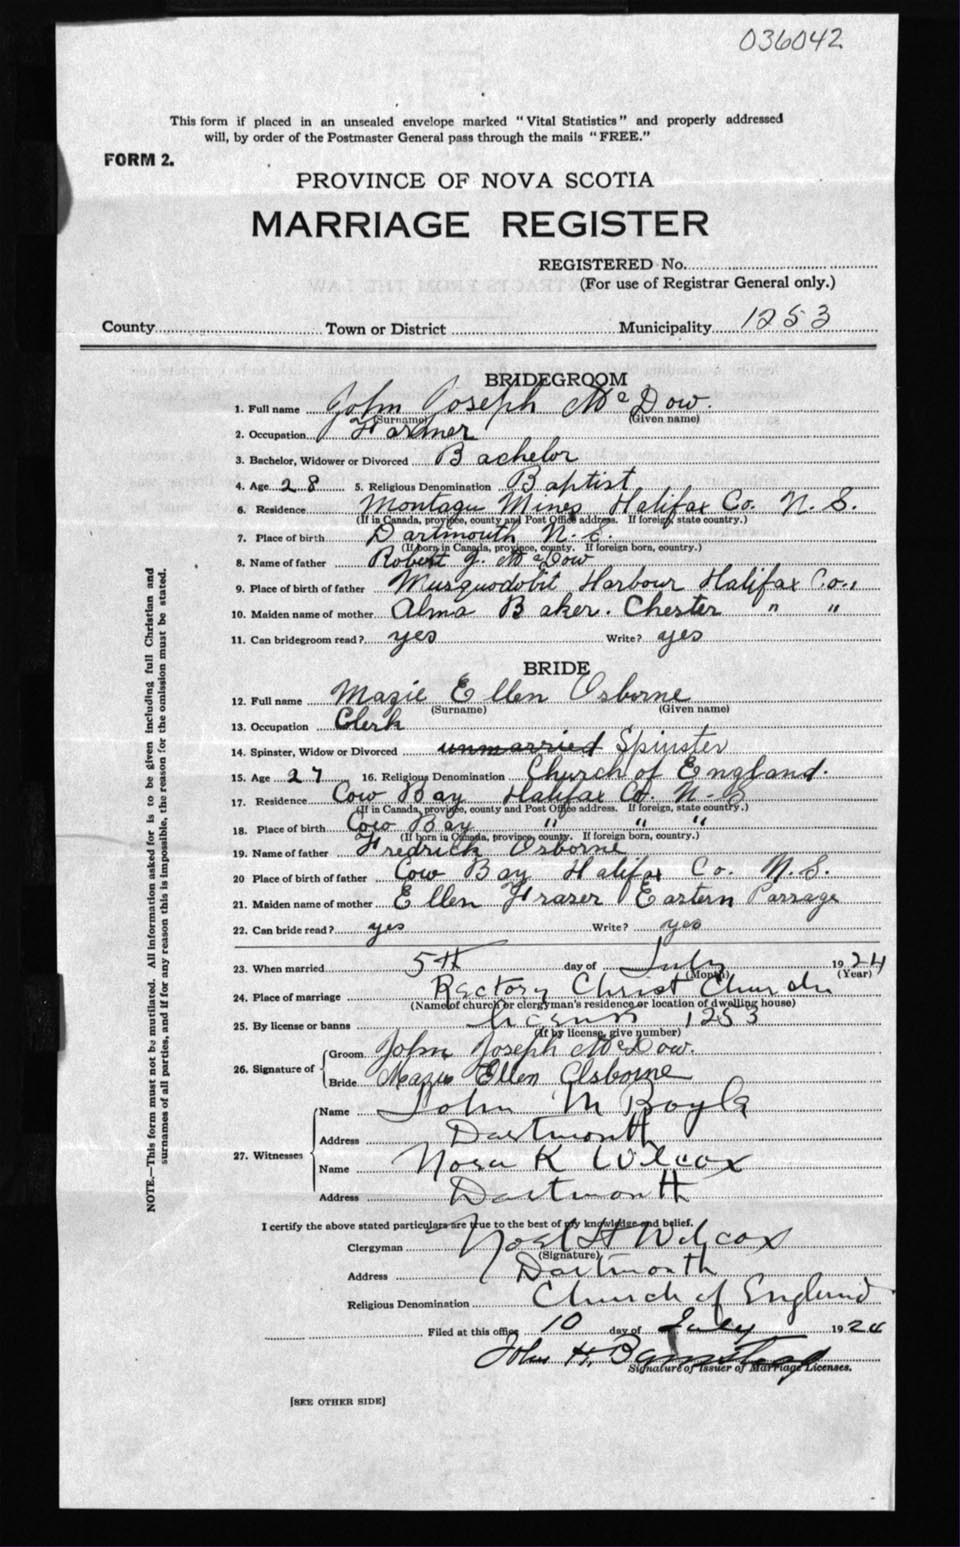 036042
This form if placed in an unsealed envelope marked "Vital Statistics" and properly addressed
will, by order of the Postmaster General pass through the mails "FREE."
FORM 2.
PROVINCE OF NOVA SCOTIA
MARRIAGE REGISTER
REGISTERED No.
(For use of Registrar General only.)
County Town or District Municipality 1253
BRIDEGROOM
1. Full name John Joseph McDow.
(Surname) (Given name)
2. Occupation Farmer
3. Bachelor, Widower or Divorced Bachelor
4. Age 28 5. Religious Denomination Baptist
6. Residence Montagu Mines Halifax Co. N. S.
(If in Canada, province, county and Post Office address. If foreign, state country.)
7. Place of birth Dartmouth N.S.
(If born in Canada, province, county. If foreign born, country.)
8. Name of father Robert J. McDow
9. Place of birth of father Musquodobit Harbour Halifax Co.,
10. Maiden name of mother Alma Baker. Chester " "
11. Can bridegroom read? yes Write? yes
BRIDE
12. Full name Mazie Ellen Osborne
(Surname) (Given name)
13. Occupation Clerk
14. Spinster, Widow or Divorced unmarried Spinster
15. Age 27 16. Religious Denomination Church of England.
17. Residence Cow Bay Halifax Co. N. S
(If in Canada, province, county and Post Office address. If foreign, state country.)
18. Place of birth Cow Bay " " "
(If born in Canada, province, county. If foreign born, country.)
19. Name of father Fredrick Osborne
20 Place of birth of father Cow Bay Halifax Co. N.S.
21. Maiden name of mother Ellen Frazer Eastern Passage
22. Can bride read? yes Write? yes
23. When married 5th day of July 1924
(Month) (Year)
24. Place of marriage Rectory Christ Church
(Name of church or clergyman's residence or location of dwelling house)
25. By license or banns License 1253
(If by license, give number)
26. Signature of
Groom John Joseph McDow.
Bride Mazie Ellen Osborne
27. Witnesses
Name John M Boyle
Address Dartmouth
Name Nora K Wilcox
Address Dartmouth
I certify the above stated particulars are true to the best of my knowledge and belief.
Clergyman Noel H Wilcox
(Signature)
Address Dartmouth
Religious Denomination Church of England
Filed at this office 10 day of July 1924
John H.
Signature of Issuer of Marriage Licenses.
[SEE OTHER SIDE]
NOTE.—This form must not be mutilated. All information asked for is to be given including full Christian and
surnames of all parties, and if for any reason this is impossible, the reason for the omission must be stated.